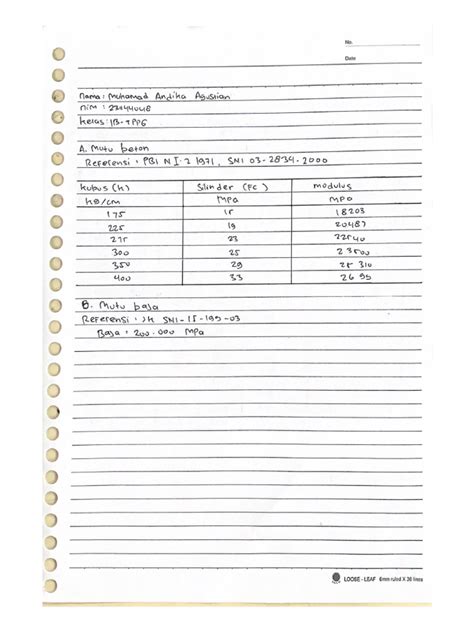 No.
Date
Nama : Muhamad Andika Agustian
Nim : 22144048
Kelas : 1B-TPPG
A. Mutu beton
Referensi : PBI N I-2 1971, SNI 03-2834-2000
Kubus (k) Silinder (Fc) modulus
kg/cm MPa MPa
175 15 18203
225 19 20487
275 23 22540
300 25 23500
350 29 25 310
400 33 26 
B. Mutu baja
Referensi : SNI-15-195-03
Baja : 200.000 MPa
LOOSE - LEAF 6mm ruled X 36 lines